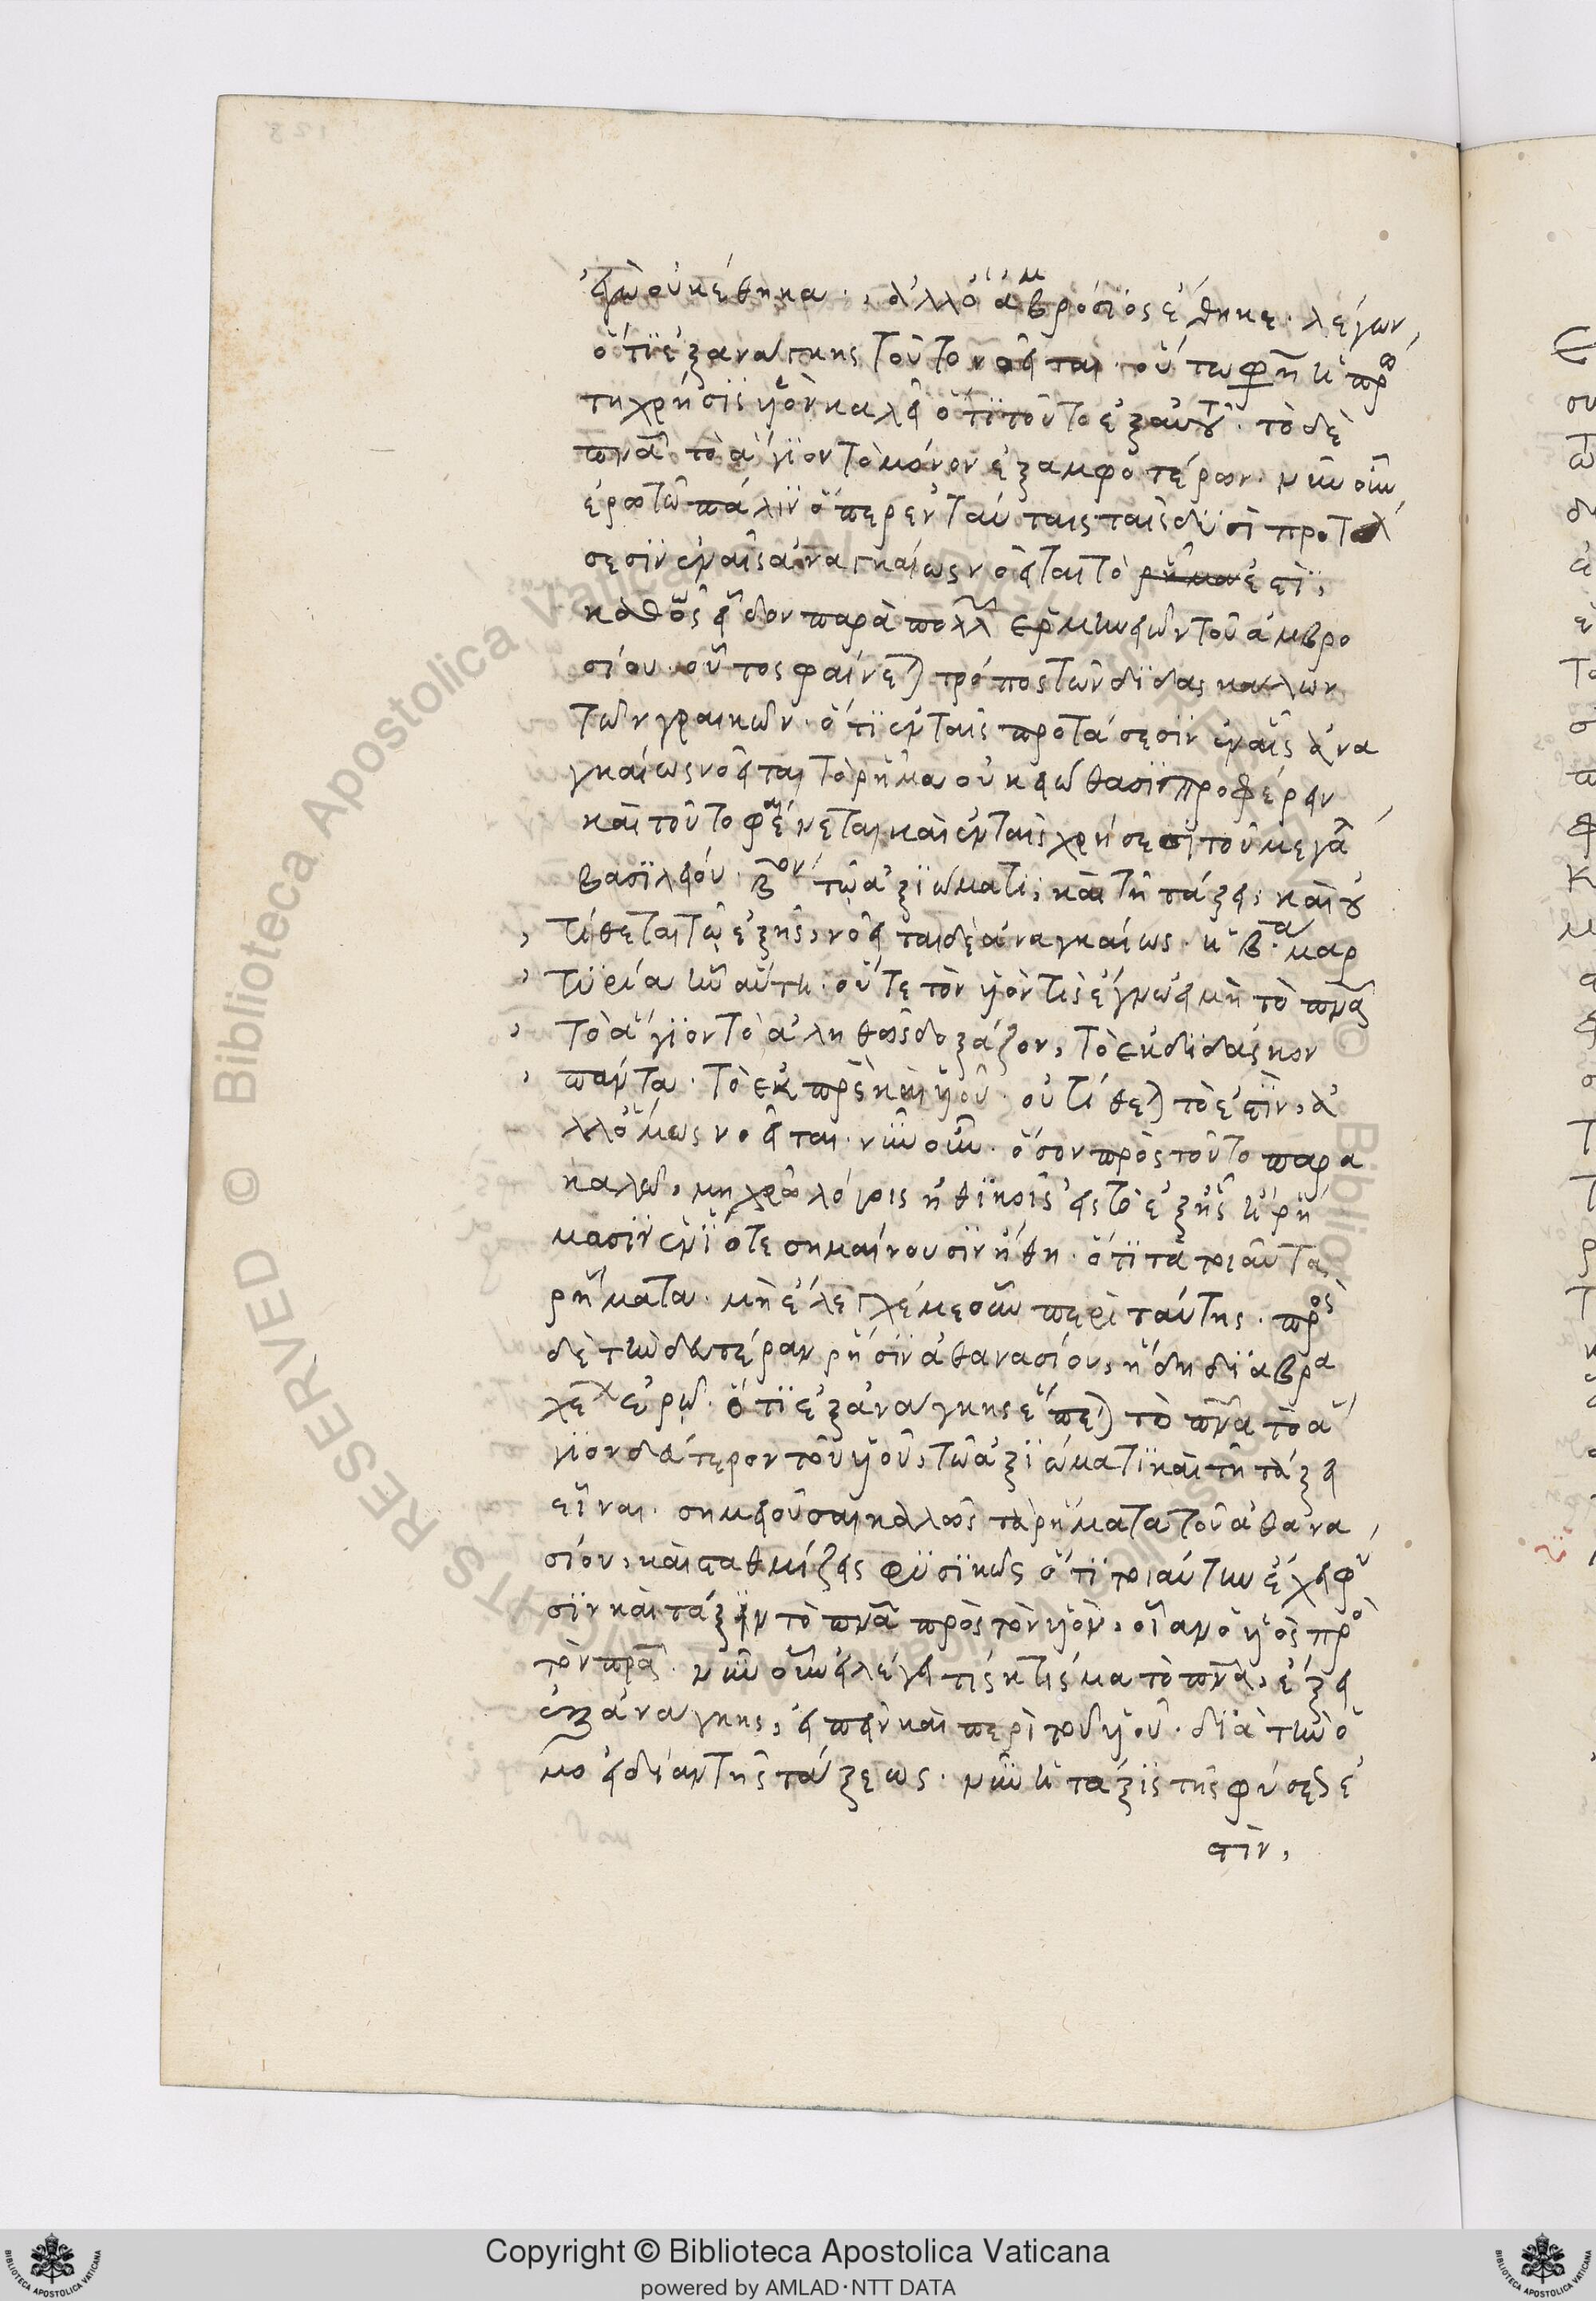 ἐγὼ οὐκ ἔθηκα·, ἀλλ' ὁ ἀμβρόσιος ἔθηκε· λέγων,
ὅτι ἐξ ἀνάγκης τοῦτο νοεῖται· οὕτω φη κ πρω
τη χρήσις υἱὸν καλεῖ ὅτι τοῦτο ἐξ αυτου· τὸ δὲ
πνα τὸ ἅγιον τὸ μόνον ἐξ ἀμφοτέρων· νῦν οὖν
ἐρωτῶ πάλιν ὅπερ ἐν ταύταις ταῖς δυσὶ προτά
σεσιν ἐν αἷς ἀναγκαίως νοεῖται τὸ ἐστί,
καθὼς εἶδον παρὰ πολλ ἑρμηνειῶν τοῦ ἀμβρο
σίου· οὗτος φαίνεται τρόπος τῶν διδασκάλων
τῶν γραικῶν· ὅτι ἐν ταῖς προτάσεσιν ἐν αἷς ἀνα
γκαίως νοεῖται τὸ ρῆμα οὐκ εἰώθασι προφέρειν
καὶ τοῦτο φαίνεται καὶ ἐν ταῖς χρήσεσι τοῦ μεγάλ
βασιλείου· βον τῷ ἀξιώματι, καὶ τῇ τάξει, καὶ οὐ
τίθεται τῷ ἑξῆς, νοεῖται δὲ ἀναγκαίως· κ βα μαρ
τυρία ἦν αὕτη· οὔτε τὸν υἱὸν τὶς ἔγνω εἰ μὴ τὸ πνα
τὸ ἅγιον τὸ ἀληθῶς δοξάζον, τὸ ἐκδιδάσκον
πάντα· τὸ ἐκ πρς καὶ υἱοῦ· οὐ τίθεται τὸ ἐστίν, ἀ
λλ' ὅμως νοεῖται· νῦν οὖν· ὅσον πρὸς τοῦτο παρα
καλῶ, μὴ χρῶ λόγοις ἠθικοῖς εἰς τὸ ἑξῆς κ ρή
μασιν ἐνίοτε σημαίνουσιν ἤθη· ὅτι τὰ τοιαῦτα
ρήματα· μὴ ἔλεγχέ με οὖν περὶ ταύτης· πρὸς
δὲ τὴν δευτέραν ρῆσιν ἀθανασίου, ἤδη διὰ βρα
χε ἐρῶ· ὅτι ἐξ ἀνάγκης ἕπεται τὸ πνα τὸ ἅ
γιον δεύτερον τοῦ υἱοῦ, τῷ ἀξιώματι καὶ τῇ τάξει
εἶναι· σημειοῦσαι καλῶς τὰ ρήματα τοῦ ἀθανα
σίου, καὶ σταθμίζεις φυσικῶς ὅτι τοιαύτην ἔχει φύ
σιν καὶ τάξιν τὸ πνα πρὸς τὸν υἱὸν, οἵαν ὁ υἱὸς πρὸ
τὸν πρα· νῦν οὖν εἰ λέγει τὶς κτίσμα τὸ πνα, ἕξει
ἐξ ἀνάγκης, εἰπεῖν καὶ περὶ τοῦ υἱοῦ· διὰ τὴν ὁ
μοειδίαν τῆς τάξεως· νῦν ἡ τάξις τῆς φύσεως ἐ
στὶν,
Copyright © Biblioteca Apostolica Vaticana
powered by AMLAD·NTT DATA